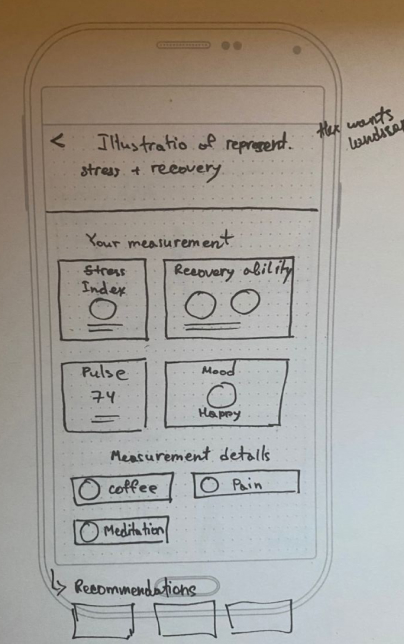 < Illustratio of represent.
stress + recovery
wants
Your measurement
Stress
Index
Recovery ability
Pulse
74
Mood
Happy
Measurement details
coffee
Pain
Meditation
↳ Recommendations